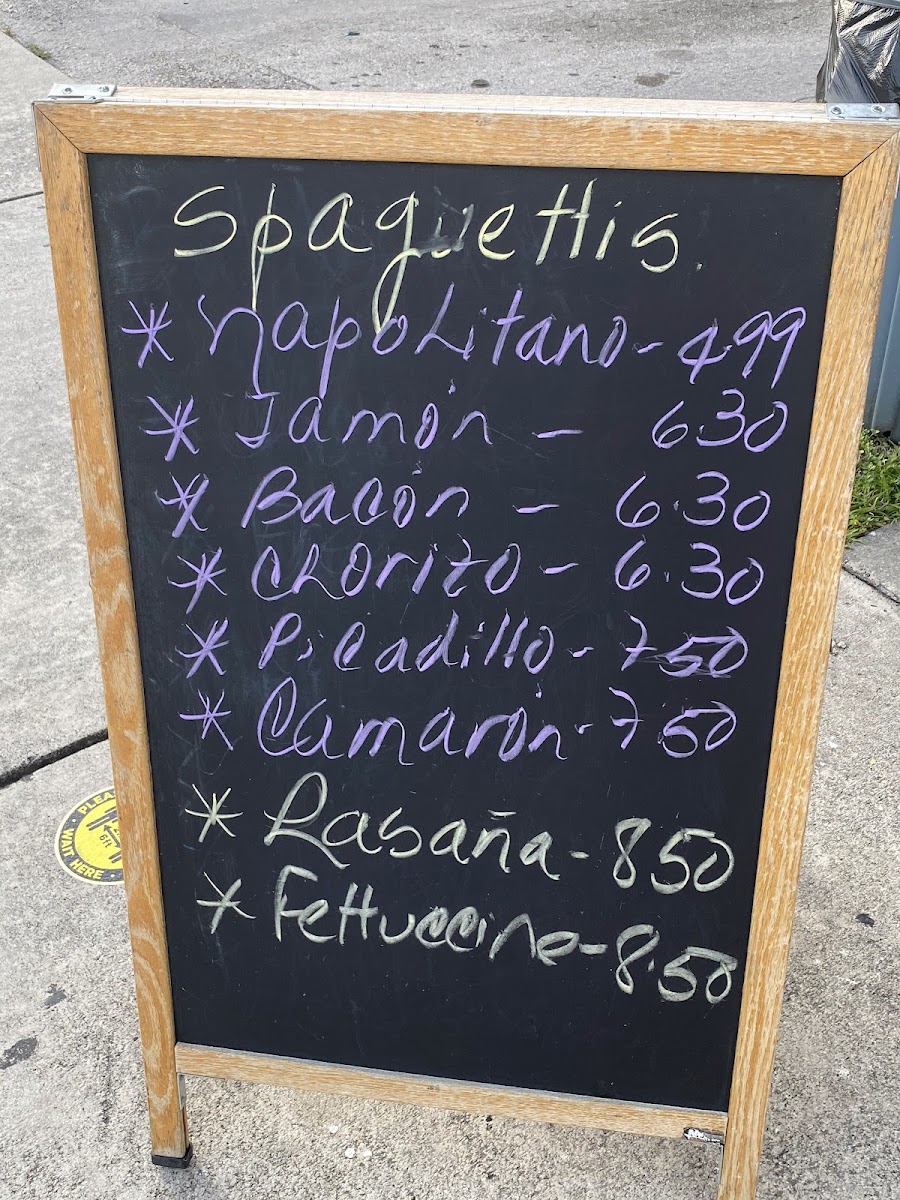 Spaguettis
* Napolitano - 4.99
* Jamón - 6.30
* Bacón - 6.30
* Chorizo - 6.30
* Picadillo - 7.50
* Camarón - 7.50
* Lasaña - 8.50
* Fettuccine - 8.50
6ft
WAIT HERE